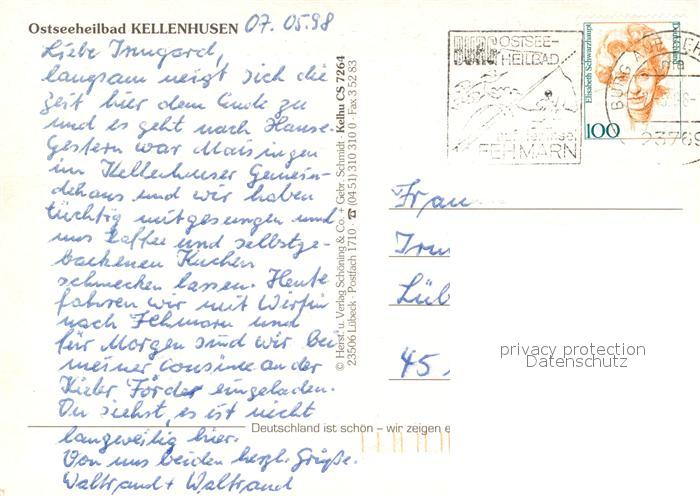 Ostseeheilbad KELLENHUSEN 07.05.98
Liebe Irmgard,
langsam neigt sich die
Zeit hier dem Ende zu
und es geht nach Hause.
Gestern war Maisingen
im Kellenhuser Gemein-
dehaus und wir haben
tüchtig mitgesungen und
uns Kaffee und selbstge-
backenen Kuchen
schmecken lassen. Heute
fahren wir mit Werfin
nach Fehmarn und
für Morgen sind wir bei
meiner Cousine an der
Kieler Förder eingeladen.
Du siehst, es ist nicht
langweilig hier.
Von uns beiden herzl. Grüße.
Waltraud + Waltraud
© Herst. u. Verlag Schöning & Co. + Gebr. Schmidt Kelhu CS 7264
23506 Lübeck · Postfach 1710 · ☎ (04 51) 310 310 · Fax 3 52 83
Deutschland ist schön – wir zeigen e
BURG OSTSEE-
HEILBAD
FEHMARN
Elisabeth Schwarzhaupt
100
BURG AUF FEH
23769
Frau
Irm
Lüb
45
privacy protection
Datenschutz